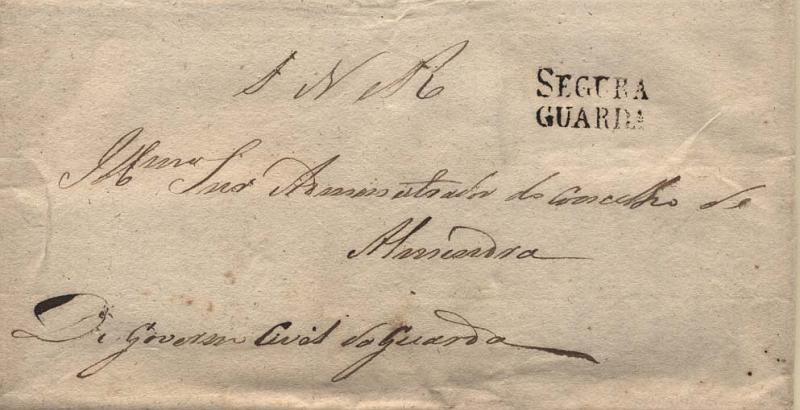 S N R
SEGURA
GUARDA
Illmo Snr Administrador do Concelho de
Almendra
Do Governo Civil da Guarda